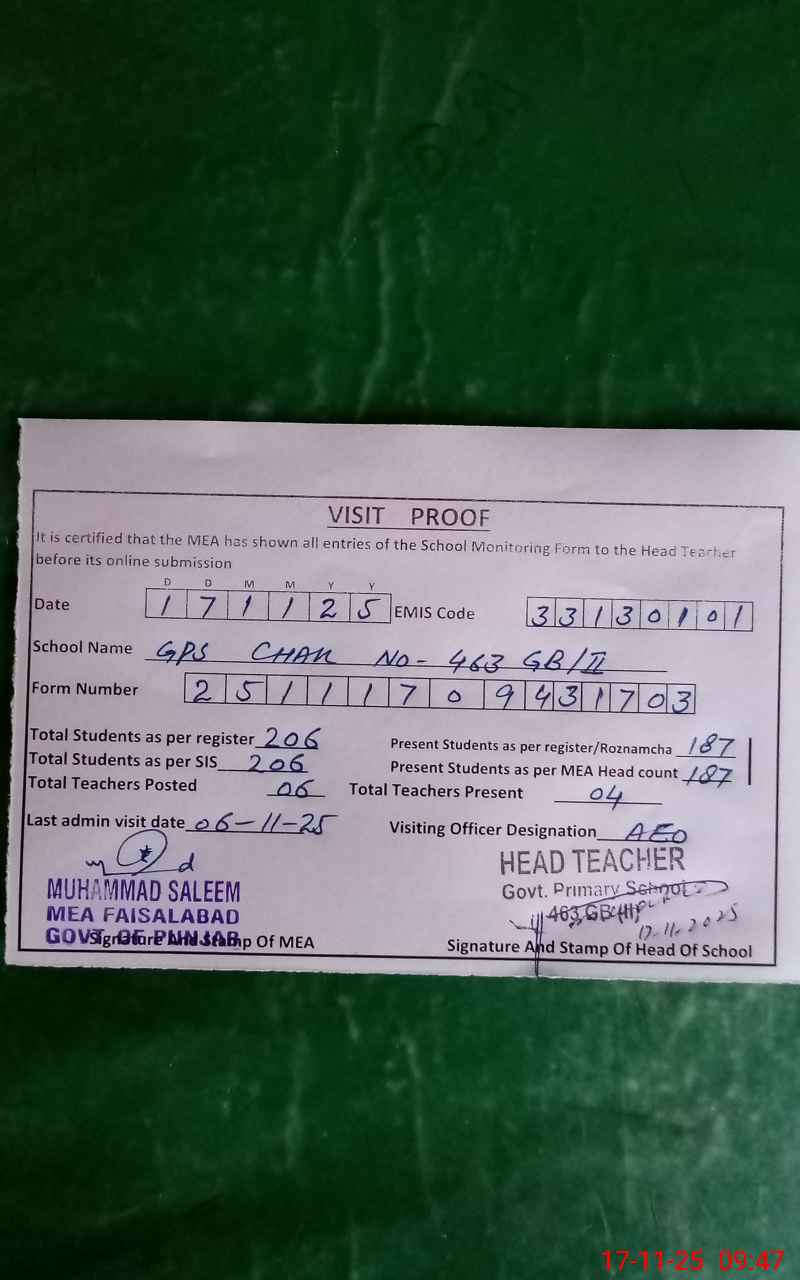 VISIT PROOF
It is certified that the MEA has shown all entries of the School Monitoring Form to the Head Teacher
before its online submission
D D M M Y Y
Date 1 7 1 1 2 5 EMIS Code 3 3 1 3 0 1 0 1
School Name GPS CHAK NO- 463 GB/II
Form Number 2 5 1 1 1 7 0 9 4 3 1 7 0 3
Total Students as per register 206 Present Students as per register/Roznamcha 187
Total Students as per SIS 206 Present Students as per MEA Head count 187
Total Teachers Posted 06 Total Teachers Present 04
Last admin visit date 06-11-25 Visiting Officer Designation AEO
MUHAMMAD SALEEM
MEA FAISALABAD
GOVT. OF PUNJAB
Signature And Stamp Of MEA
HEAD TEACHER
Govt. Primary School
463, GB
17.11.2025
Signature And Stamp Of Head Of School
17-11-25 09:47